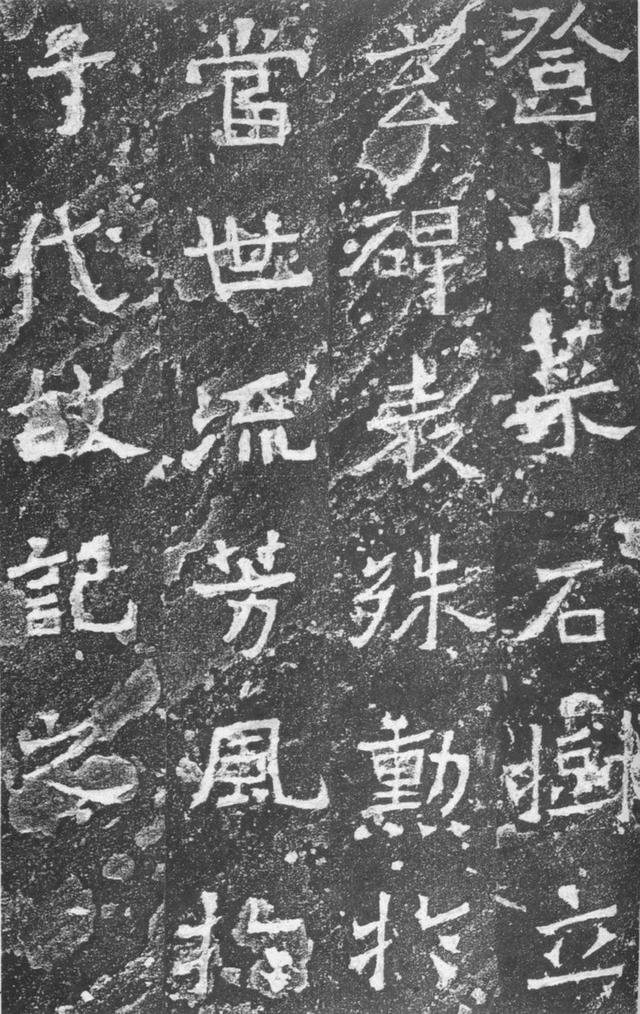 登山菜石樹立
玄碑表殊勳於
當世流芳風於
千代故記之